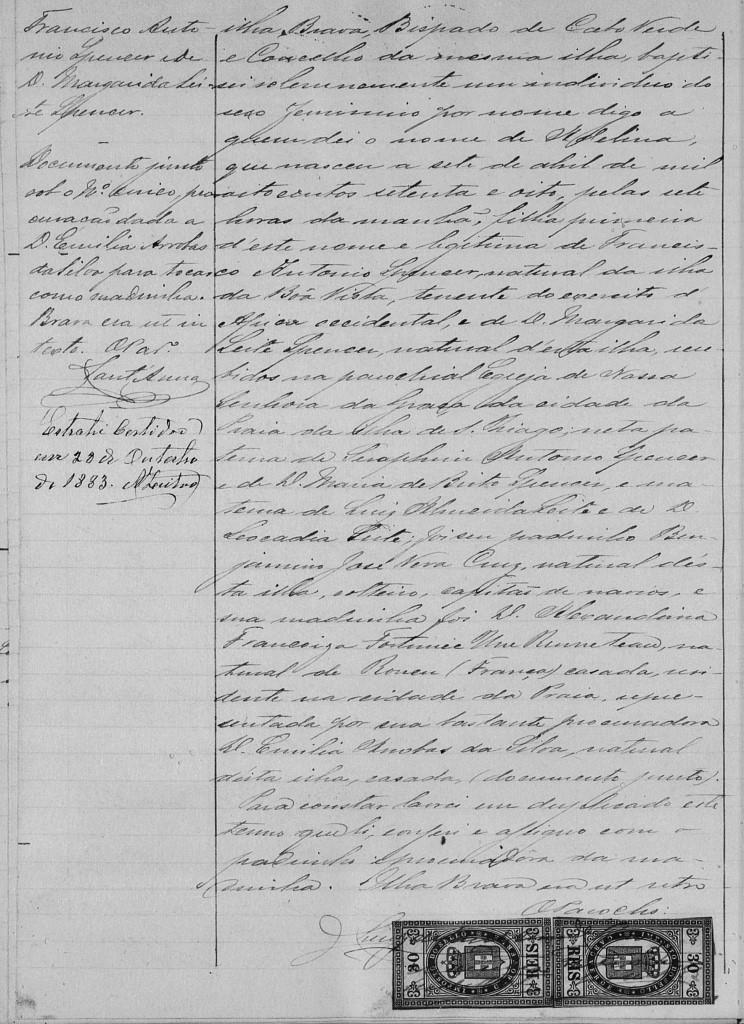 Francisco Anto-
nio Spencer e de
D. Margarida Lei-
te Spencer.
Documento junto
sob o Nº unico, pro-
curação dada a
D. Emilia Arrobas
da Silva para tocar
como madrinha.
Brava era ut in
texto. O Par.º
Sant'Anna
Extrahi Certidão
em 23 de Outubro
de 1883.
ilha Brava, Bispado de Cabo Verde
e Concelho da mesma ilha, bapti-
sei solemnemente um individuo do
sexo feminino por nome digo a
quem dei o nome de
que nasceu a sete de abril de mil
oitocentos setenta e oito, pelas sete
horas da manhã, filha primeira
d'este nome e legitima de Francis-
co Antonio Spencer, natural da ilha
da Bôa Vista, tenente do exercito d'
Africa occidental, e de D. Margarida
Leite Spencer, natural d'esta ilha, rece-
bidos na parochial Egreja de Nossa
Senhora da Graça da cidade da
Praia da ilha de S. Thiago; neta pa-
terna de Seraphim Antonio Spencer
e de D. Maria de Brito Spencer, e ma-
terna de Luiz Almeida Leite e de D.
Leocadia Leite; foi seu padrinho Ben-
jamim José Vera Cruz, natural d'es-
ta ilha, solteiro, capitão de navios, e
sua madrinha foi D. Alexandrina
Francisca Fortunée Renneteau, na-
tural de Rouen (França) casada, resi-
dente na cidade da Praia, repre-
sentada por sua bastante procuradora
D. Emilia Arrobas da Silva, natural
d'esta ilha, casada, (documento junto).
Para constar lavrei em duplicado este
termo que li, conferi e assigno com o
padrinho e procuradora da ma-
drinha. Ilha Brava era ut retro
O Parocho:
30 REIS
REIS 30